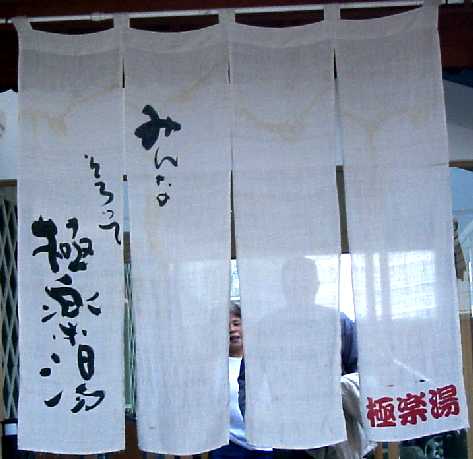 みんな
そろって
極楽湯
極楽湯